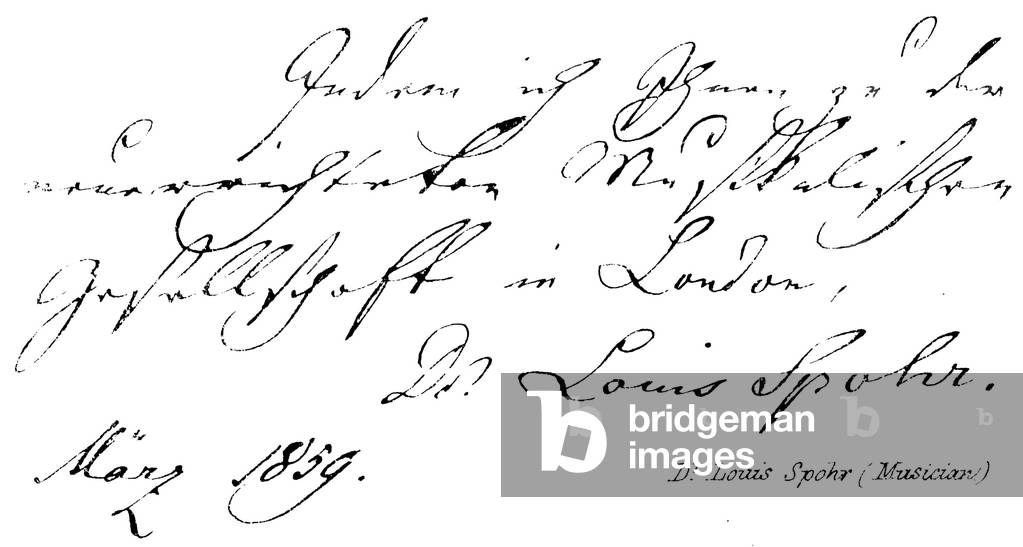 Indem ich Ihnen zu der
neuerrichteten Musikalischen
Gesellschaft in London,
Dr. Louis Spohr.
März 1859.
bridgeman
images
Dr. Louis Spohr (Musician)